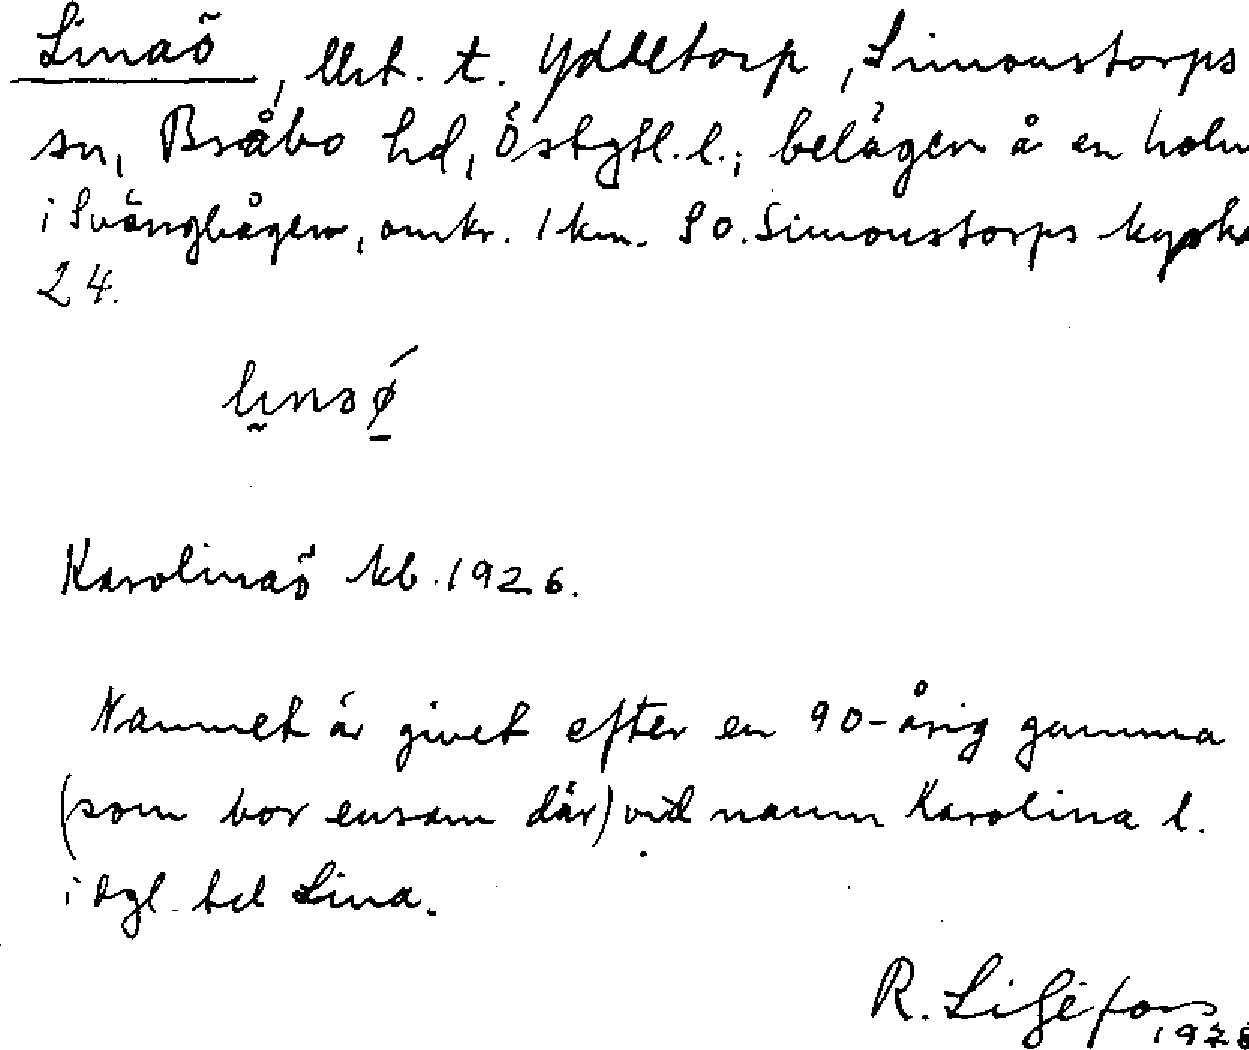 Linaö, lht. t. Yddetorp, Simonstorps
sn, Bråbo hd, Östgtl. l.; belägen å en holm
i Svängbågen, omkr. 1 km. SO. Simonstorps kyrka
24.
Karolinaö kb. 1926.
Namnet är givet efter en 90-årig gumma
(som bor ensam där) vid namn Karolina l.
i dgl. tal Lina.
R. Liljefors
1928